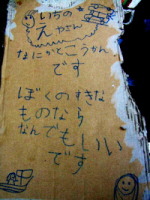 いちの
え やさん
なにかとこうかん
です
ぼくのすきな
ものなら
なんでもいい
です